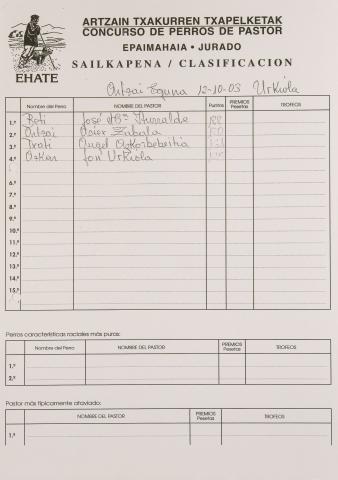 ARTZAIN TXAKURREN TXAPELKETAK
CONCURSO DE PERROS DE PASTOR
EPAIMAHAIA · JURADO
SAILKAPENA / CLASIFICACION
EHATE
Artzai Eguna 12-10-03 Urkiola
Nombre del Perro NOMBRE DEL PASTOR Puntos PREMIOS Pesetas TROFEOS
1.º Beti José Mª Iturralde
2.º Artzai Osier Zabala
3.º Irati Angel Azkorbebeitia
4.º Azkar Jon Urkiola
5.º
6.º
7.º
8.º
9.º
10.º
11.º
12.º
13.º
14.º
15.º
Perros características raciales más puras:
Nombre del Perro NOMBRE DEL PASTOR PREMIOS Pesetas TROFEOS
1.º
2.º
Pastor más típicamente ataviado:
NOMBRE DEL PASTOR PREMIOS Pesetas TROFEOS
1.º